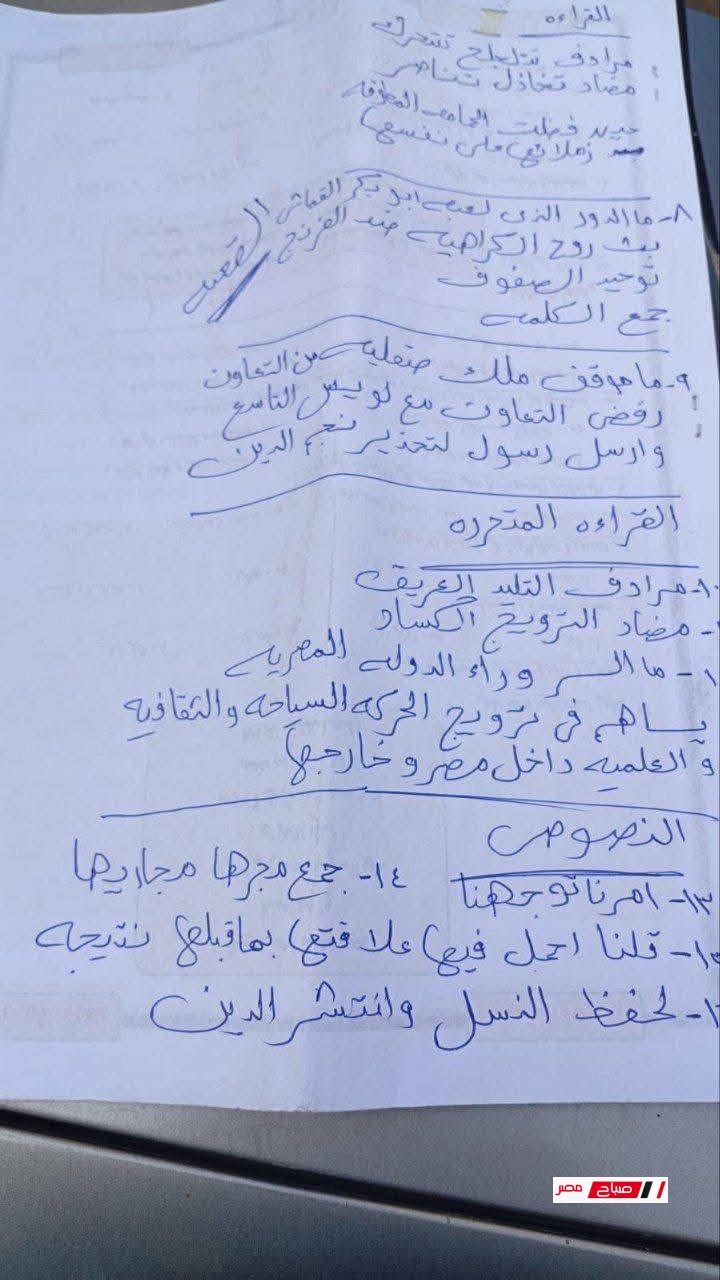 القراءه
مرادف تتلجلج تتحرك
مضاد تخاذل تناصر
فضلت الحمامه المطوقه
زملائها على نفسها
٨- ما الدور الذى لعبه ابو بكر القماش
بث روح الكراهيه ضد الفرنج
توحيد الصفوف
جمع الكلمه
٩- ما موقف ملك صقليه من التعاون
رفض التعاون مع لويس التاسع
وارسل رسول لتحذير نجم الدين
القراءه المتحرره
١٠- مرادف التليد العريق
- مضاد الترويج الكساد
١- ما السر وراء الدوله المصريه
يساهم فى ترويج الحركه السياحه والثقافيه
والعلميه داخل مصر وخارجها
النصوص
١٣- امرنا توجهنا ١٤- جمع مجرها مجاريها
١٥- قلنا احمل فيها علاقتها بما قبلها نتيجه
١- لحفظ النسل وانتشر الدين
صباح مصر